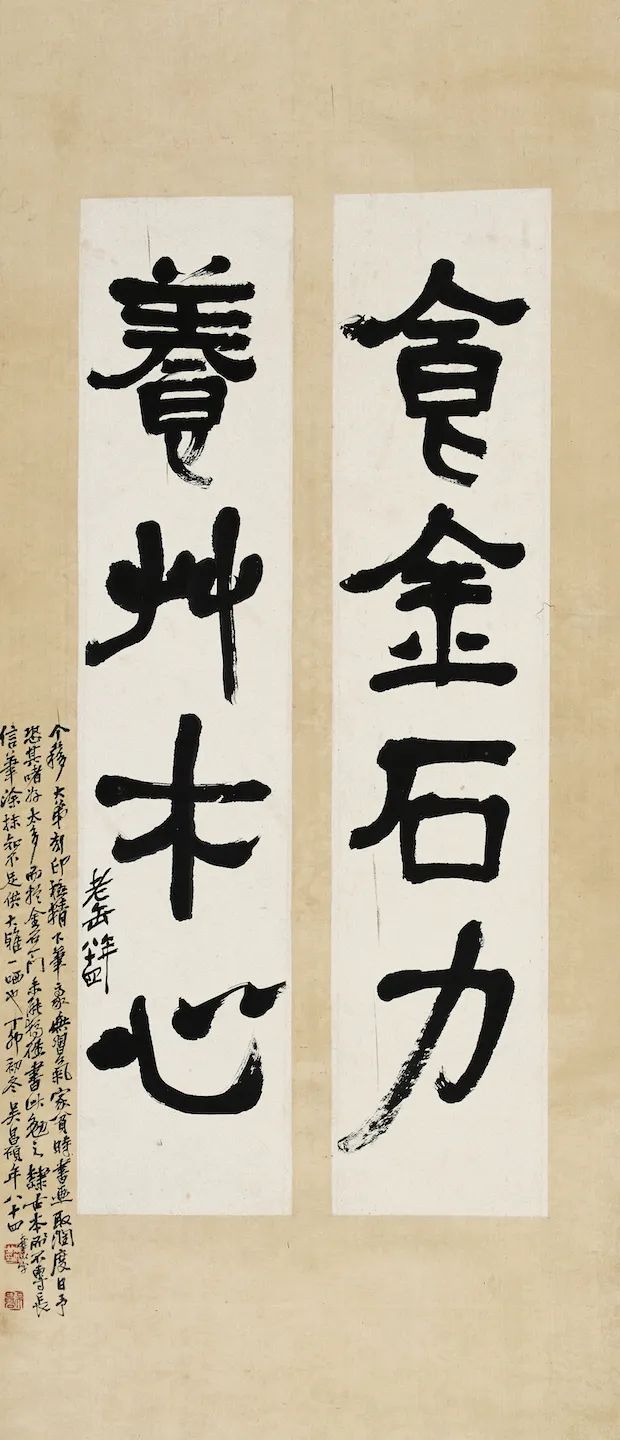 食金石力
養艸木心
老缶年八十四
个簃大弟刻印極精下筆豪無習氣家貧時書畫取潤度日予
恐其嗜好太多而於金石門未能為極書此勉之隸古本所不專長
信筆塗抹知不足供大雅一哂也丁卯初冬吳昌碩年八十四